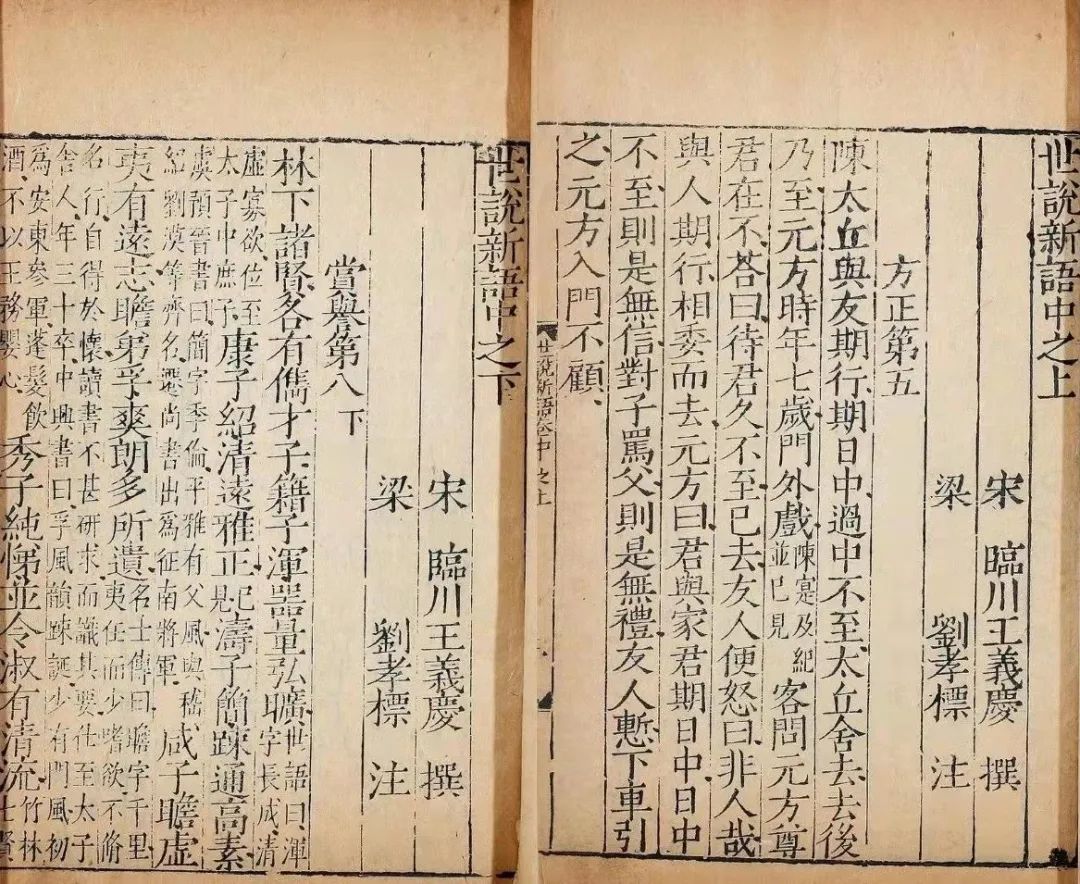 世說新語中之上
宋 臨川王義慶 撰
梁 劉孝標 注
方正第五
陳太丘與友期行期日中過中不至太丘舍去去後
乃至元方時年七歲門外戲陳寔及紀並已見客問元方尊
君在不荅曰待君久不至已去友人便怒曰非人哉
與人期行相委而去元方曰君與家君期日中日中
不至則是無信對子罵父則是無禮友人慙下車引
之元方入門不顧
世說新語卷中之上
世說新語中之下
宋 臨川王義慶 撰
梁 劉孝標 注
賞譽第八下
林下諸賢各有儁才子籍子渾器量弘曠世語曰渾字長成清
虛寡欲位至太子中庶子康子紹清遠雅正已見濤子簡踈通高素
虞預晉書曰簡字季倫平雅有父風與嵇紹劉漠等齊名遷尚書出爲征南將軍咸子瞻虛
夷有遠志瞻弟孚爽朗多所遺名士傳曰瞻字千里夷任而少嗜欲不脩
名行自得於懷讀書不甚研求而識其要仕至太子舍人年三十卒中興書曰孚風韻踈誕少有門風初
爲安東參軍蓬髮飲酒不以王務嬰心秀子純悌並令淑有清流竹林七賢